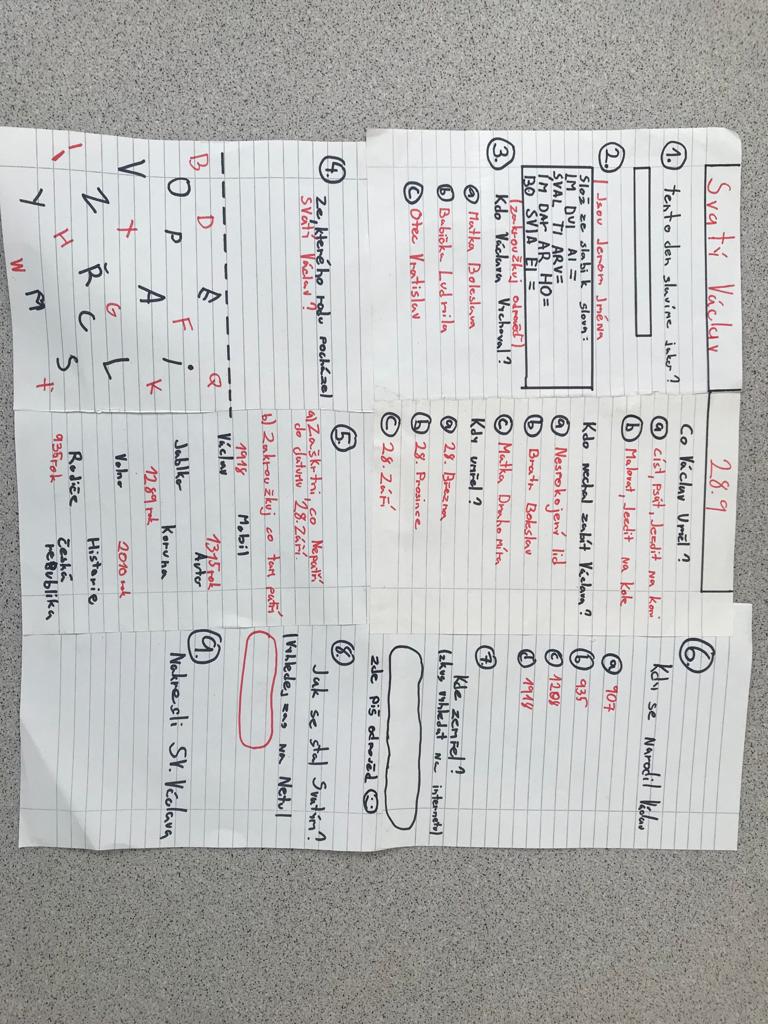 Svatí Václav
28.9
1. Tento den slavíme jako?
2. (Jsou jenom Jména
Slož ze slabik slova:
IM DVI AI =
SVAL TI ARV=
IM DAR AR HO=
BO SVIA EI =
3. (zakroužkuj odpověď)
Kdo Václava Vychoval?
a Matka Boleslava
b Babička Ludmila
c Otec Vratislav
4. Ze, kterého rodu pocházel
SVATÍ Václav?
B D Ě Q
O P F i
V X A K
Z Ř G L
Í H C S
Y W M t
Co Václav Uměl?
a číst, psát, Jezdit na koni
b Malovat, Jezdit na kole
Kdo nechal zabít Václava?
a Nespokojený lid
b Bratr Boleslav
c Matka Drahomíra
Kdy umřel?
a 28. Března
b 28. Prosince
c 28. Září
5.
a) Zaškrtni, co Nepatří
do datumu 28. Září.
b) Zakroužkuj co tam patří
Václav
1918 Mobil
1315 rok
Auto
Jablko Koruna
1289 rok
Volno 2010 rok
Historie
Rodiče
935 rok Česká
republika
6.
Kdy se Narodil Václav
a 907
b 935
c 1208
d 1918
7. Kde zemřel?
(zkus vyhledat na internetu)
zde piš odpověď
8. Jak se stal Svatím?
(Vyhledej zas na Netu)
9.
Nakresli SV. Václava